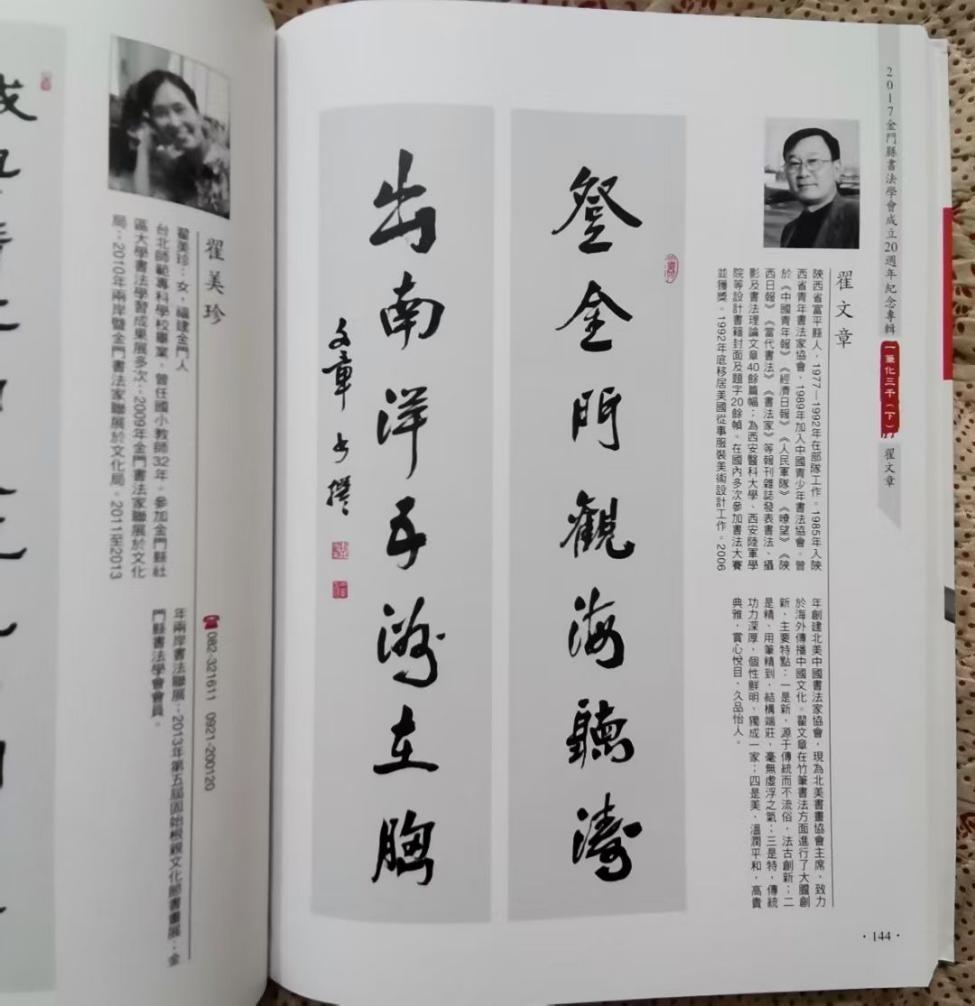 2017金門縣書法學會成立20週年紀念專輯 一筆化三千(下) 翟文章
翟文章
陝西省富平縣人,1977—1992年在部隊工作。1985年入陝
西省青年書法家協會,1989年加入中國青少年書法協會。曾
於《中國青年報》《經濟日報》《人民軍隊》《瞭望》《陝
西日報》《當代書法》《書法家》等報刊雜誌發表書法、攝
影及書法理論文章40餘篇幅;為西安醫科大學、西安陸軍學
院等設計書籍封面及題字20餘幀。在國內多次參加書法大賽
並獲獎。1992年底移居美國從事服裝美術設計工作。2006
年創建北美中國書法家協會,現為北美書畫協會主席,致力
於海外傳播中國文化。翟文章在竹筆書法方面進行了大膽創
新,主要特點:一是新,源于傳統而不流俗,法古創新;二
是精,用筆精到,結構端莊,毫無虛浮之氣;三是特,傳統
功力深厚,個性鮮明,獨成一家;四是美,溫潤平和,高貴
典雅,賞心悅目,久品怡人。
登金門觀海聽濤
出南洋在胸
文章
·144·
翟美珍
翟美珍:女,福建金門人
台北師範專科學校畢業,曾任國小教師32年。參加金門縣社
區大學書法學習成果展多次;2009年金門書法家聯展於文化
局;2010年兩岸暨金門書法家聯展於文化局。2011至2013
☎ 082-321611 0921-200120
年兩岸書法聯展;2013年第五屆固始根親文化節書畫展;金
門縣書法學會會員。